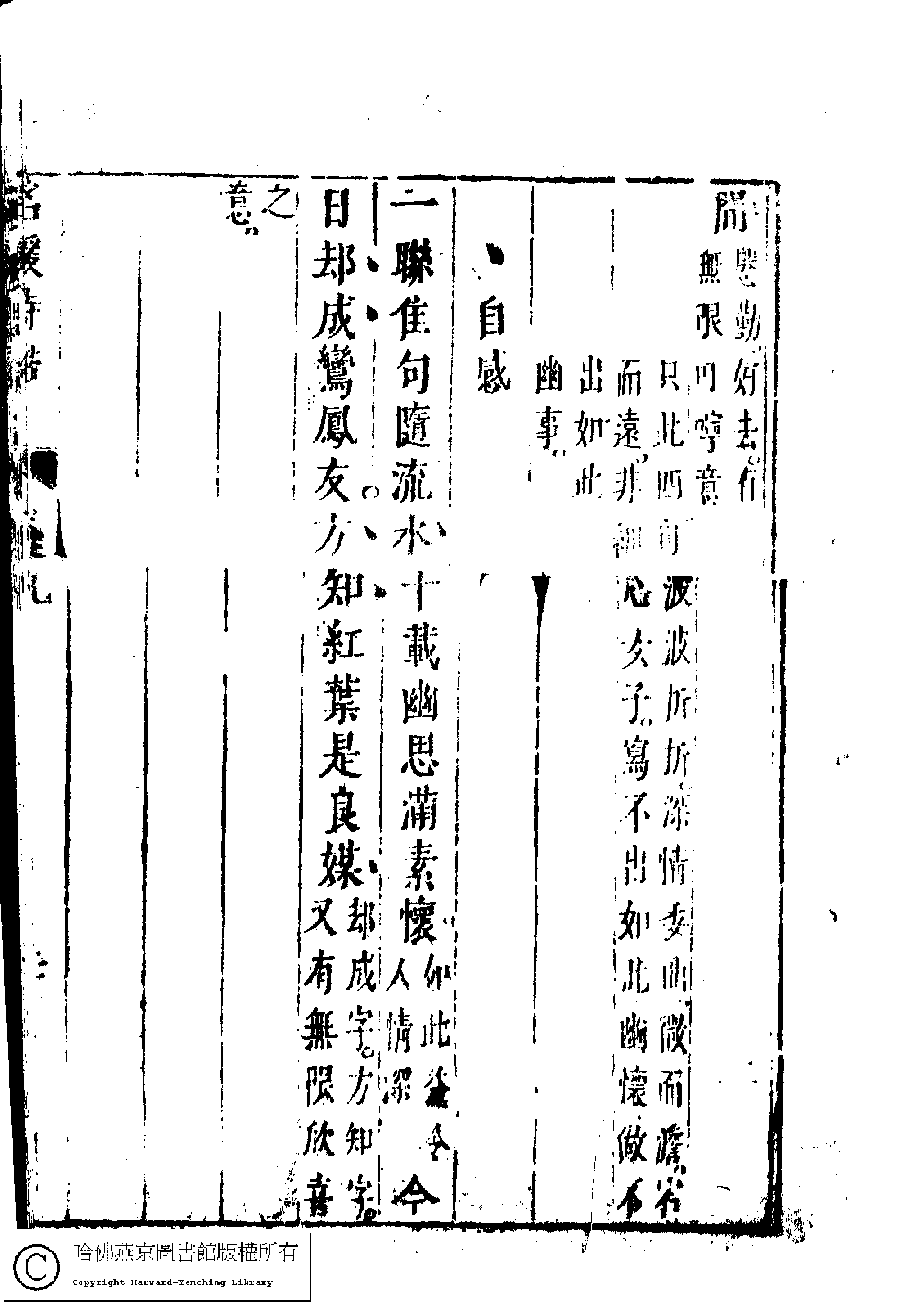 間 慇勤好去有
無限叮嚀意
只此四句波波折折深情委曲微而
而遠非細心女子寫不出如此幽懷做不
出如此
幽事
自感
一聯佳句隨流水十載幽思滿素懷 如此
人情深 今
日却成鸞鳳友方知紅葉是良媒 却成字方知字
又有無限欣喜
之
意
名媛詩歸
哈佛燕京圖書館版權所有
Copyright Harvard-Yenching Library